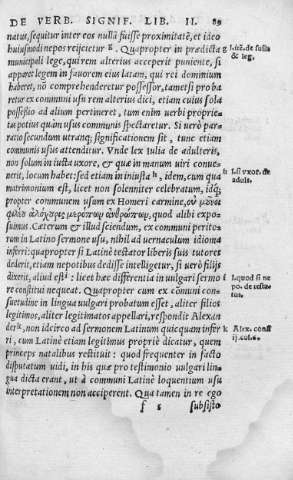 DE VERB. SIGNIF. LIB. II. 89
natus, sequitur inter eos nullā fuisse proximitatē, et ideo
huiusmodi nepos reijcetur g. Quapropter in prædicta
municipali lege, qui rem alterius acceperit puniente, si
appareat legem in fauorem eius latam, qui rei dominium
haberet, nō comprehenderetur possessor, tametsi proba
retur ex communi usu rem alterius dici, etiam cuius sola
possessio ad alium pertineret, tum enim uerbi proprie-
tas potius quàm usus communis spectaretur. Si uerò pa
reret secundum utranq; significationem sit, tunc etiam
communis usus attenditur. Vnde lex iulia de adulterijs,
non solum in iusta uxore, & quæ in manum uiri conue-
nerit, locum habet: sed etiam in iniusta h, idem, cum qua
matrimonium est, licet non solenniter celebratum, idq;
propter communem usum ex Homeri carmine,
quod alibi expo-
sumus. Caterum & illud sciendum, ex communi perito-
rum in Latino sermone usu, nihil ad uernaculum idioma
inferri: quapropter si Latinè testator liberis suis tutores
dederit, etiam nepotibus dedisse intelligetur, si uerò filijs
dixerit, aliud est i: licet hæc differentia in uulgari sermo
re constitui nequeat. Quapropter cum ex cōmuni con-
suetudine in lingua uulgari probatum esset, aliter filios
legitimos, aliter legitimatos appellari, respondit Alexan
der k, non idcirco ad sermonem Latinum quicquam infer
ri, cum Latinè etiam legitimus propriè dicatur, quem
princeps natalibus restituit: quod frequenter in facto
disputatum uidi, in his quæ pro testimonio uulgari lin-
gua dicta erant, ut à communi Latinè loquentum usu
interpretationem non acciperent. Qua tamen in re ego
f 5 subsisto
& leg.
h
adult.
i
k Alex.